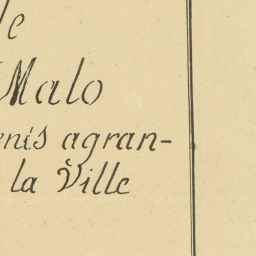 le
Malo
enis agran-
la Ville